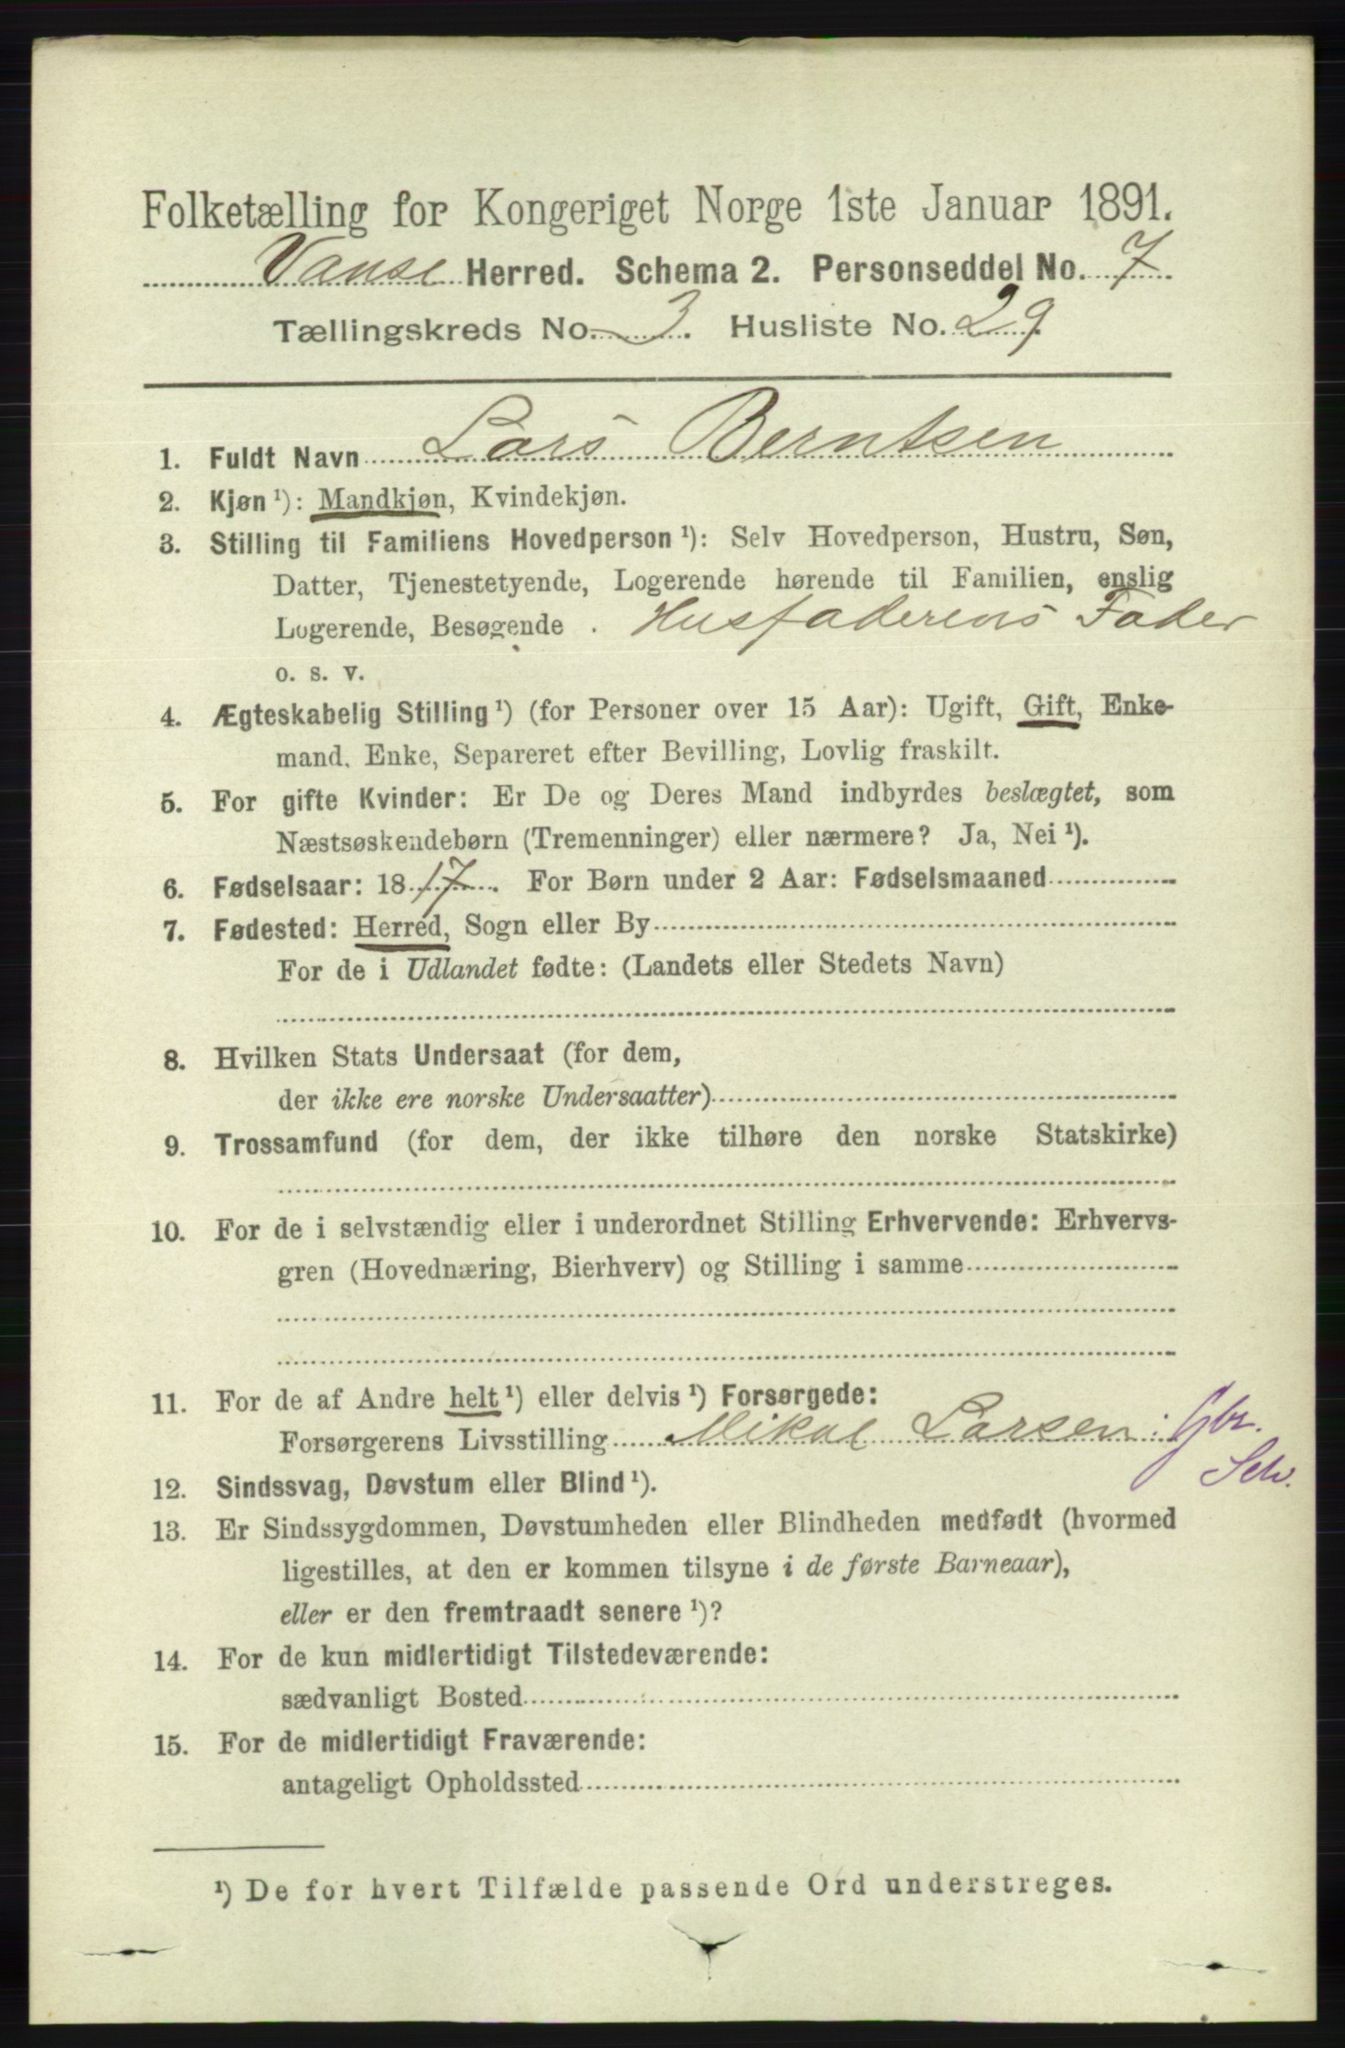 Folketælling for Kongeriget Norge 1ste Januar 1891.
Vanse Herred. Schema 2. Personseddel No. 7
Tællingskreds No. 3. Husliste No. 29.
1. Fuldt Navn Lars Berntsen
2. Kjøn ¹): Mandkjøn, Kvindekjøn.
3. Stilling til Familiens Hovedperson ¹): Selv Hovedperson, Hustru, Søn,
Datter, Tjenestetyende, Logerende hørende til Familien, enslig
Logerende, Besøgende . Husfaderens Fader
o. s. v.
4. Ægteskabelig Stilling ¹) (for Personer over 15 Aar): Ugift, Gift, Enke-
mand, Enke, Separeret efter Bevilling, Lovlig fraskilt.
5. For gifte Kvinder: Er De og Deres Mand indbyrdes beslægtet, som
Næstsøskendebørn (Tremenninger) eller nærmere? Ja, Nei ¹).
6. Fødselsaar: 1817. For Børn under 2 Aar: Fødselsmaaned
7. Fødested: Herred, Sogn eller By
For de i Udlandet fødte: (Landets eller Stedets Navn)
8. Hvilken Stats Undersaat (for dem,
der ikke ere norske Undersaatter)
9. Trossamfund (for dem, der ikke tilhøre den norske Statskirke)
10. For de i selvstændig eller i underordnet Stilling Erhvervende: Erhvervs-
gren (Hovednæring, Bierhverv) og Stilling i samme
11. For de af Andre helt ¹) eller delvis ¹) Forsørgede:
Forsørgerens Livsstilling Mikal Larsen: Gbr.
Selv.
12. Sindssvag, Døvstum eller Blind ¹).
13. Er Sindssygdommen, Døvstumheden eller Blindheden medfødt (hvormed
ligestilles, at den er kommen tilsyne i de første Barneaar),
eller er den fremtraadt senere ¹)?
14. For de kun midlertidigt Tilstedeværende:
sædvanligt Bosted
15. For de midlertidigt Fraværende:
antageligt Opholdssted
¹) De for hvert Tilfælde passende Ord understreges.